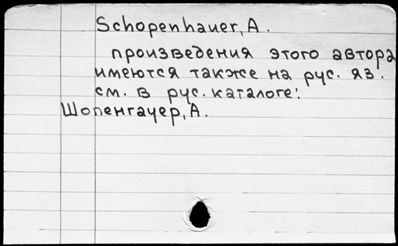 Schopenhauer, A.
произведения этого автора
имеются также на рус. яз.
см. в рус. каталоге:
Шопенгауер, А.